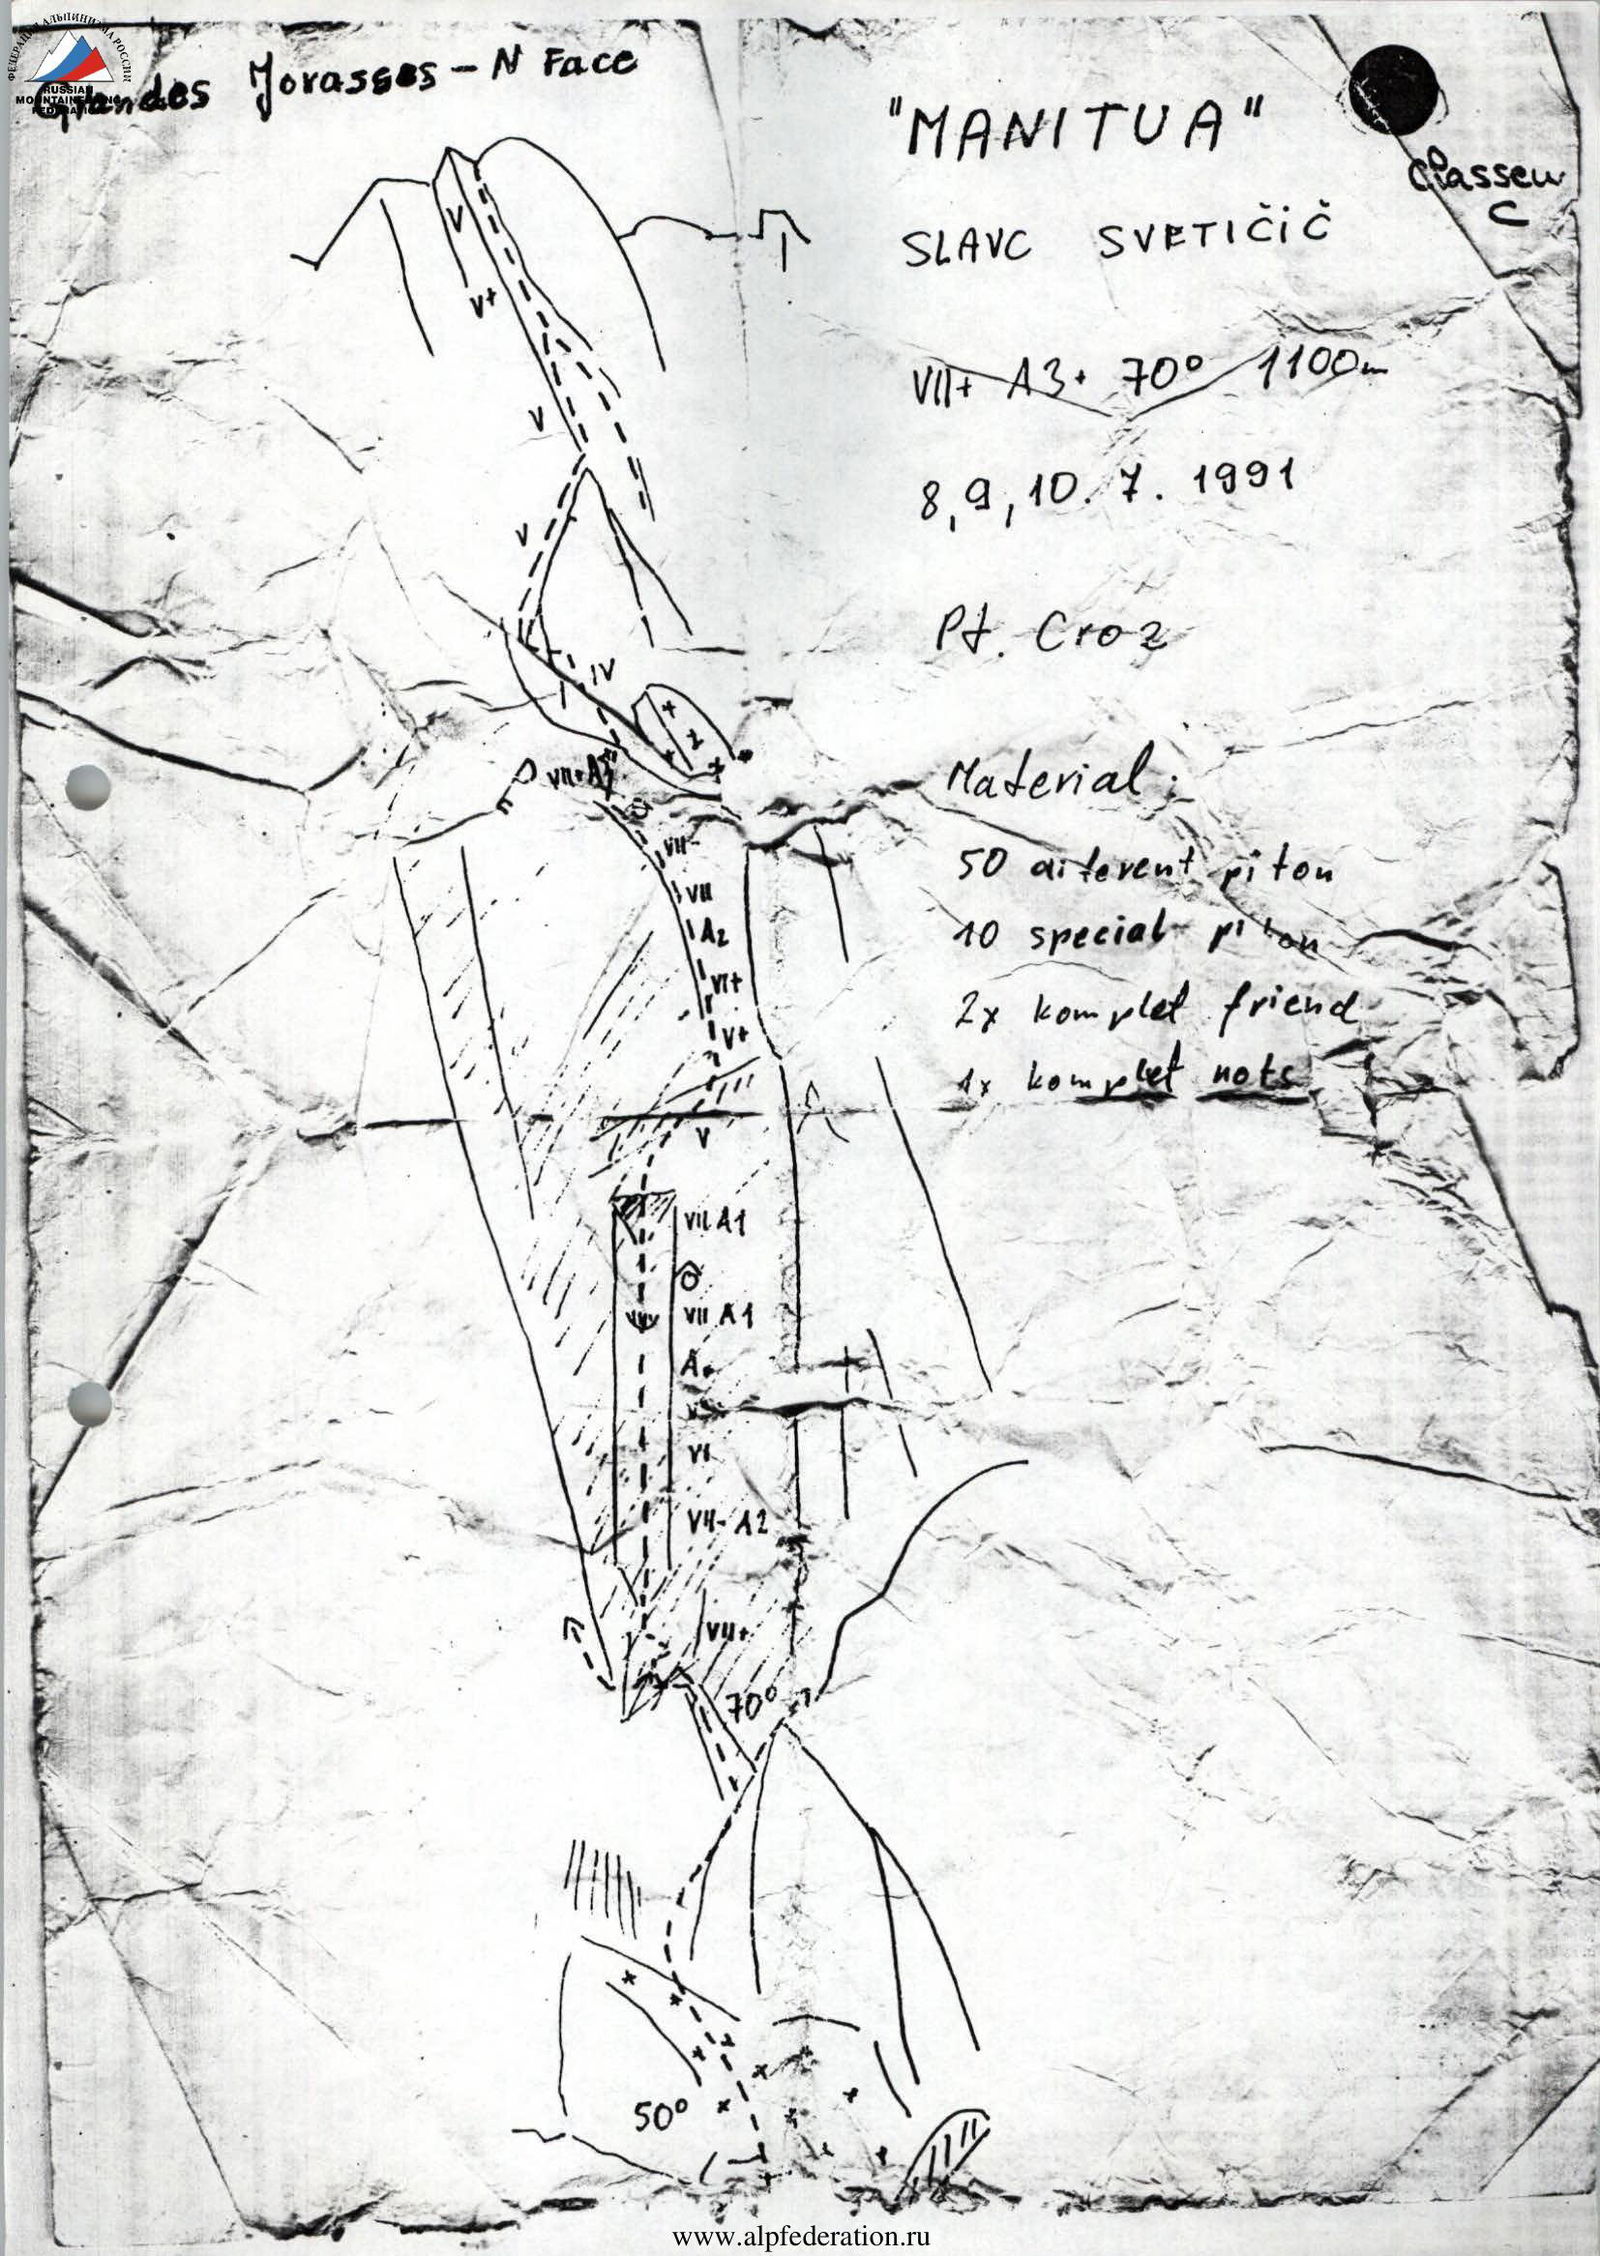 ФЕДЕРАЦИЯ АЛЬПИНИЗМА РОССИИ
RUSSIAN
MOUNTAINEERING
FEDERATION
Grandes Jorasses - N Face
"MANITUA"
Classeur
C
SLAVC SVETIČIČ
VII+ A3+ 70° 1100m
8,9,10. 7. 1991
Pt. Croz
Material:
50 diferent piton
10 special piton
2x komplet friend
1x komplet nots
V
V+
V
V
IV
2
VII+A3
VII-
VII
A2
VI+
V+
V
VII A1
VII A1
VI
VII- A2
VII+
70°
50°
www.alpfederation.ru